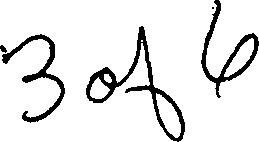 3 of 6